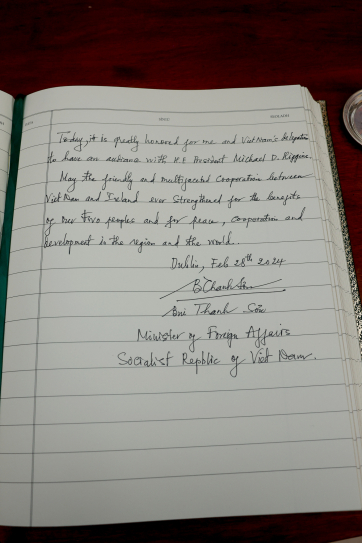 Today, it is greatly honored for me and Viet Nam's Delegation
to have an audience with H.E President Michael D. Higgins.
May the friendly and multifaceted Cooperation between
Viet Nam and Ireland ever Strengthened for the benefits
of our two peoples and for peace, cooperation and
development in the region and the world.
Dublin, Feb 28th 2024
BThanhSon
Bui Thanh Sơn
Minister of Foreign Affairs
Socialist Repblic of Viet Nam.